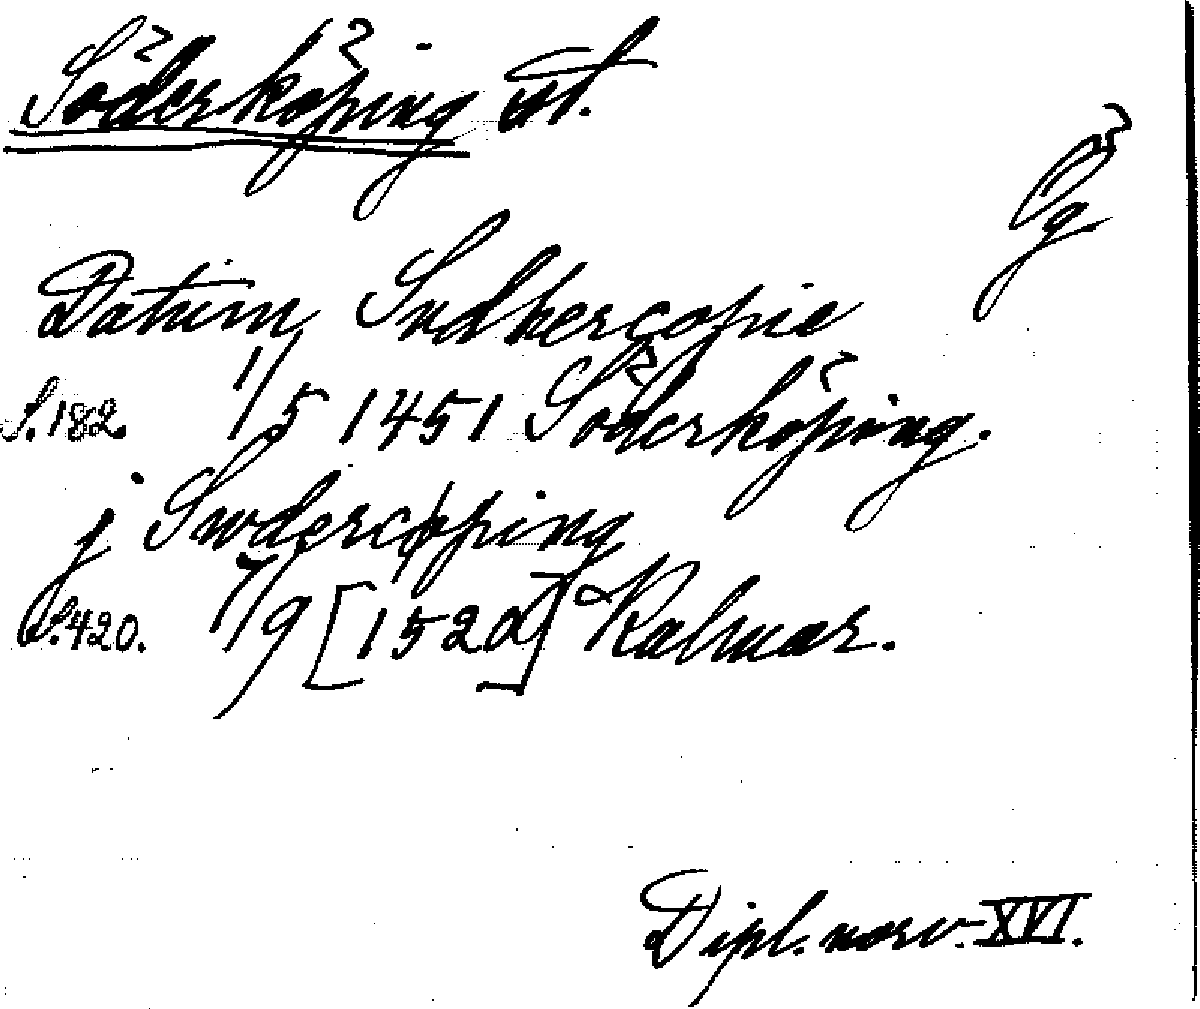 Söderköping st.
Ög
Datum Sudhercopie
S.182. 1/5 1451 Söderköping.
j Swdercøping
S.420. 7/9 [1520] Kalmar.
Dipl. norv. XVI.